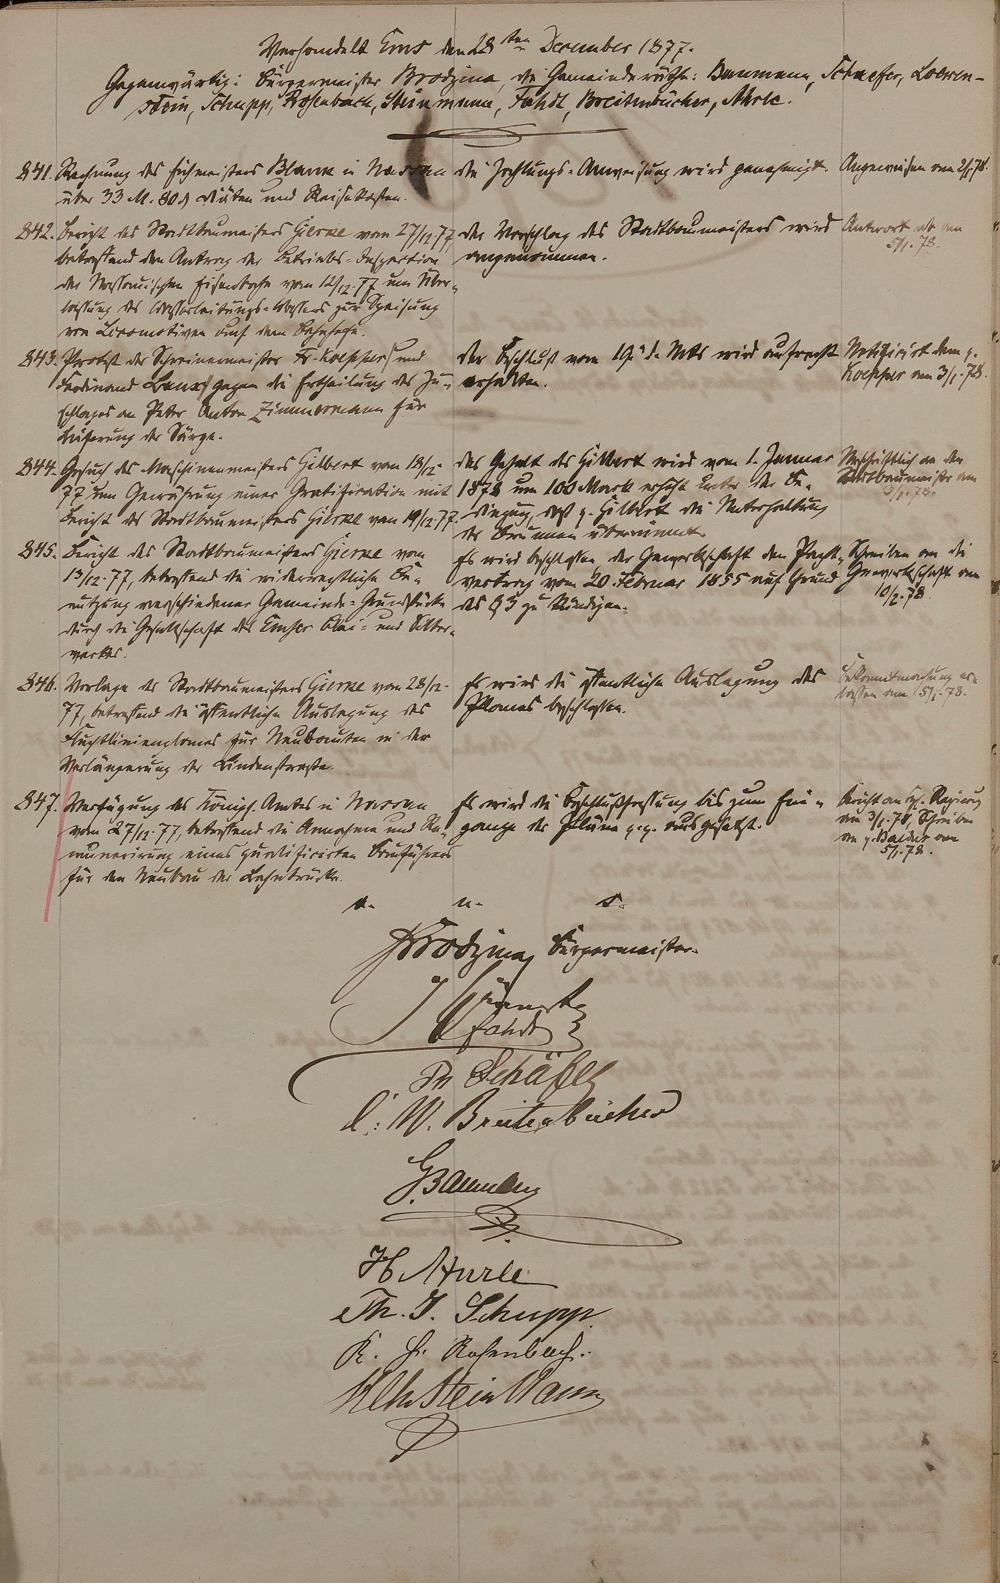 Verhandelt Ems den 28ten December 1877.
Gegenwärtig: Bürgermeister Brodzina, die Gemeinderäthe: Baumann, Schaefer, Loewen-
stein, Schupp, Rosenbach, Steinmann, Fahdt, Breitenbücher, Ahrle.
841. Rechnung des Eichmeisters Blank in Nassau
über 33 M. 80 Diäten und Reisekosten.
die Zahlungs-Anweisung wird genehmigt.
Angewiesen am 2/1.78.
842. Bericht des Stadtbaumeisters Gierke vom 27/12.77,
betreffend den Antrag der Betriebs-Inspection
der Nassauischen Eisenbahn vom 12/12.77 um Über-
lassung des Wasserleitungs-Wassers zur Speisung
von Locomotiven auf dem Bahnhofe.
der Vorschlag des Stadtbaumeisters wird
angenommen.
Antwort ab am
5/1.78.
843. Protest der Schreinermeister Fr. Koepper und
Ferdinand Laux gegen die Ertheilung des Zu-
schlages an Peter Anton Zimmermann für
Lieferung der Särge.
der Beschluß vom 19. d. Mts wird aufrecht
erhalten.
Notificirt dem p.
Koepper am 3/1.78.
844. Gesuch des Maschinenmeisters Gilbert vom 18/12.
77 um Gewährung einer Gratification mit
Bericht des Stadtbaumeisters Gierke vom 19/12.77.
das Gehalt des Gilbert wird vom 1. Januar
1878 um 100 Mark erhöht unter der Be-
dingung, daß p. Gilbert die Unterhaltung
der Brunnen übernimmt.
Abschriftlich an den
Stadtbaumeister am
3/1.78.
845. Bericht des Stadtbaumeisters Gierke vom
13/12.77, betreffend die widerrechtliche Be-
nutzung verschiedener Gemeinde-Grundstücke
durch die Gesellschaft des Emser Blei- und Silber-
werkes.
Es wird beschlossen der Gewerkschaft den Pacht-
vertrag vom 20. Februar 1855 auf Grund
des § 3 zu kündigen.
Schreiben an die
Gewerkschaft am
10/2.78.
846. Vorlage des Stadtbaumeisters Gierke vom 28/12.
77, betreffend die öffentliche Auslegung des
Fluchtlinienplanes für Neubauten in der
Verlängerung der Lindenstraße.
Es wird die öffentliche Auslegung des
Planes beschlossen.
Bekanntmachung er-
lassen am 5/1.78.
847. Verfügung des Königl. Amtes in Nassau
vom 27/12.77, betreffend die Annahme und Re-
munerirung eines qualificirten Bauführers
für den Neubau der Lahnbrücke.
Es wird die Beschlußfassung bis zum Ein-
gange der Pläne p.p. ausgesetzt.
Bericht an Kgl. Regierung
am 3/1.78, Schreiben
an p. am
5/1.78.
v. u. s.
Brodzina Bürgermeister.
Fahdt
Ph Schäfer
C. W. Breitenbücher
G. Baumann
H Ahrle
Th. J. Schupp
K. H. Rosenbach.
Wilh Steinmann